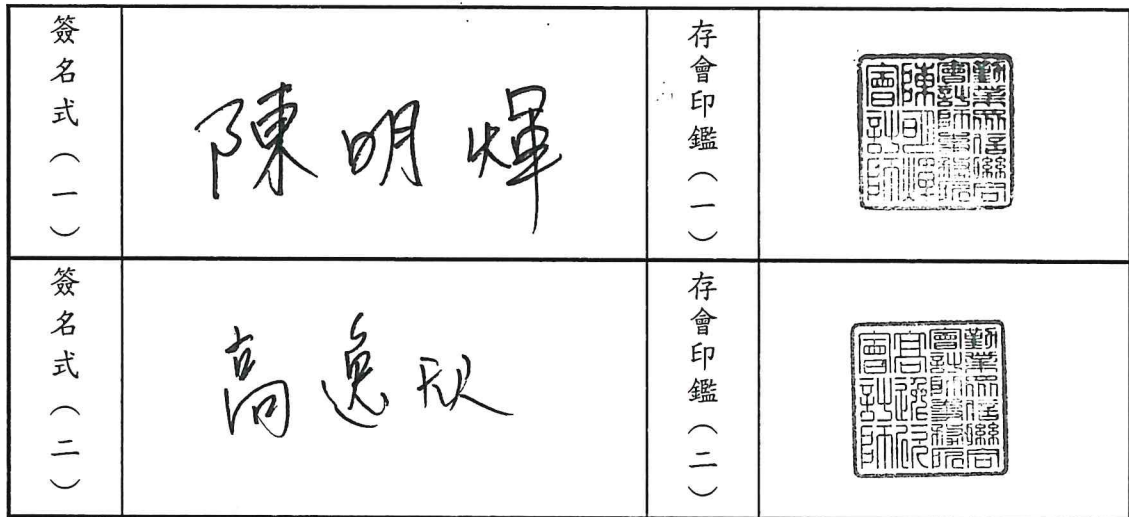 簽名式（一）
陳明煇
存會印鑑（一）
勤業眾信聯合
會計師事務所
陳明煇
會計師
簽名式（二）
高逸欣
存會印鑑（二）
勤業眾信聯合
會計師事務所
高逸欣
會計師